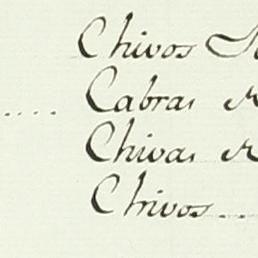 Chivos
.... Cabras
Chivas
Chivos...